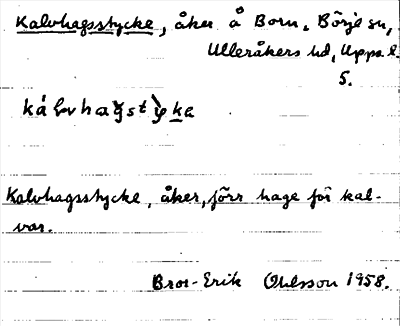 Kalvhagsstycke, åker å Born, Börje sn,
Ulleråkers hd, Upps. l.
5.
Kalvhagsstycke, åker, förr hage för kal-
var.
Bror-Erik Ohlsson 1958.